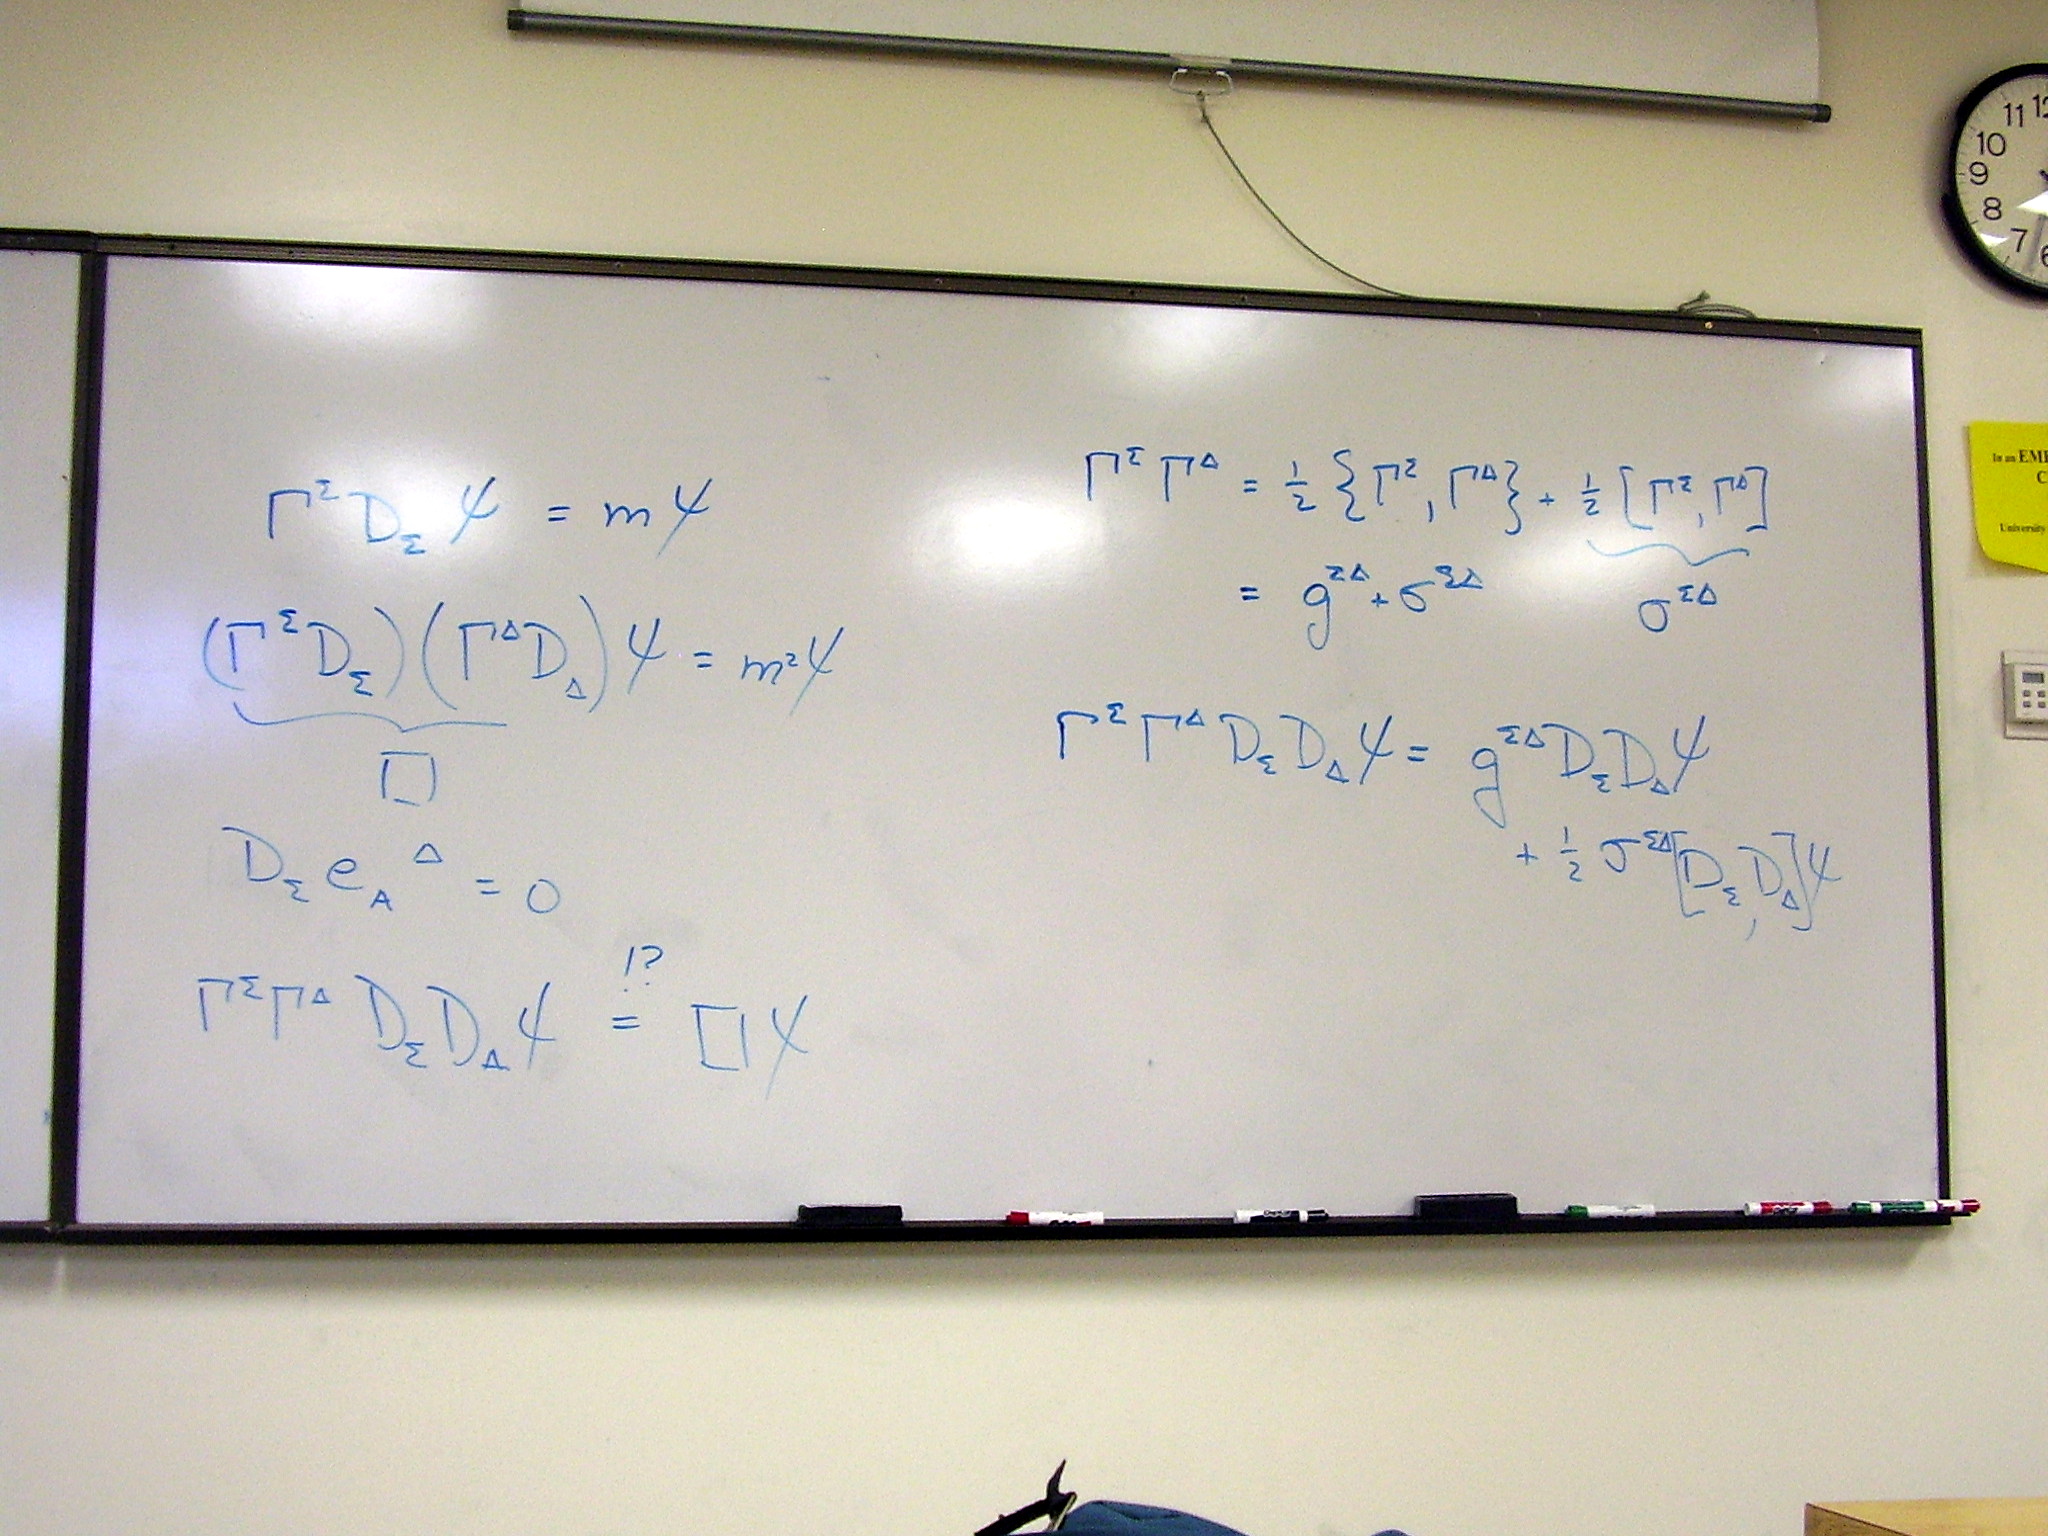 Γ^Σ D_Σ ψ = mψ
(Γ^Σ D_Σ)(Γ^Δ D_Δ)ψ = m²ψ
□
D_Σ e_A^Δ = 0
Γ^Σ Γ^Δ D_Σ D_Δ ψ =^{!?} □ψ
Γ^Σ Γ^Δ = 1/2 {Γ^Σ, Γ^Δ} + 1/2 [Γ^Σ, Γ^Δ]
= g^{ΣΔ} + σ^{ΣΔ}
σ^{ΣΔ}
Γ^Σ Γ^Δ D_Σ D_Δ ψ = g^{ΣΔ} D_Σ D_Δ ψ
+ 1/2 σ^{ΣΔ} [D_Σ, D_Δ]ψ
11 12
10
9
8
7
6
In an EME
C
University